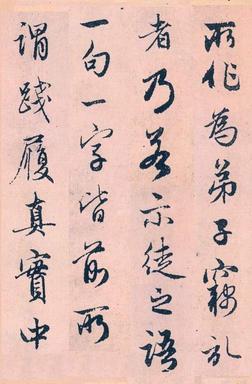 所作為弟子竊亂
者乃若示徒之語
一句一字皆前所
謂踐履真實中